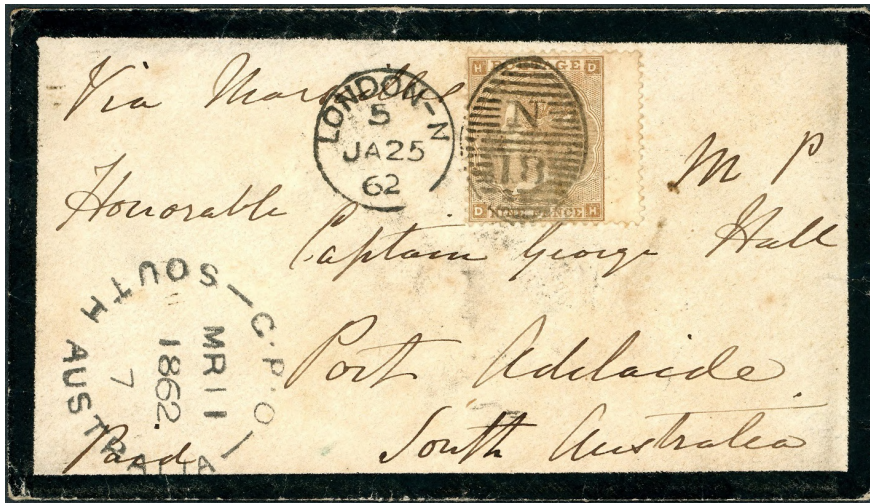 Via Marseilles
LONDON-N
5
JA25
62
H POSTAGE D
NT
18
D NINE PENCE H
M P
Honorable
Captain George Hall
Port Adelaide
South Australia
Paid
G.P.O
SOUTH AUSTRALIA
MR11
1862
7